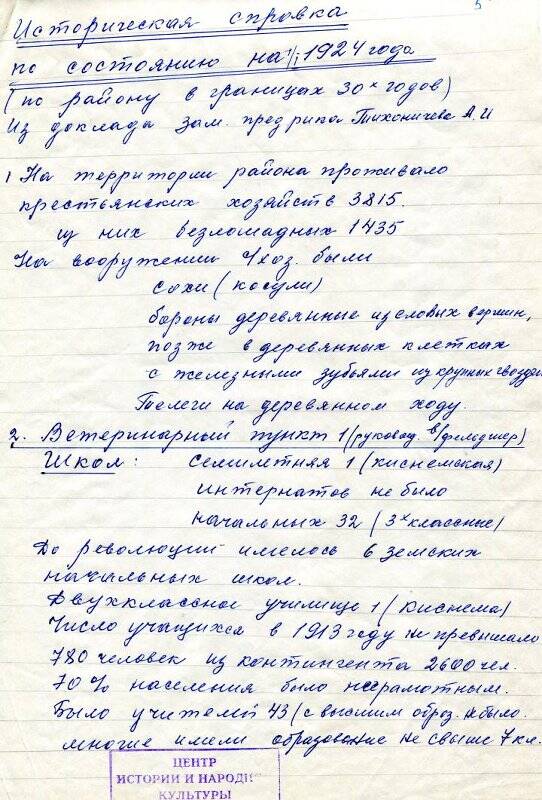 5
Историческая справка
по состоянию на 1/I 1924 года
(по району в границах 30х годов)
Из доклада зам. предрика Тихоничева А.И
1 На территории района проживало
крестьянских хозяйств 3815.
из них безлошадных 1435
На вооружении 4 хоз. были
сохи (косули)
бороны деревянные из еловых вершин,
позже в деревянных клетках
с железными зубьями из крупных гвоздей
Телеги на деревянном ходу.
2. Ветеринарный пункт 1 (руковод. в/фельдшер)
Школ: семилетняя 1 (киснемская)
интернатов не было
начальных 32 (3х классные)
До революции имелось 6 земских
начальных школ.
Двухклассное училище 1 (киснема)
Число учащихся в 1913 году не превышало
780 человек из контингента 2600 чел.
70% населения было неграмотным.
Было учителей 43 (с высшим образ. не было.
многие имели образование не свыше 7 кл.
ЦЕНТР
ИСТОРИИ И НАРОДН
КУЛЬТУРЫ